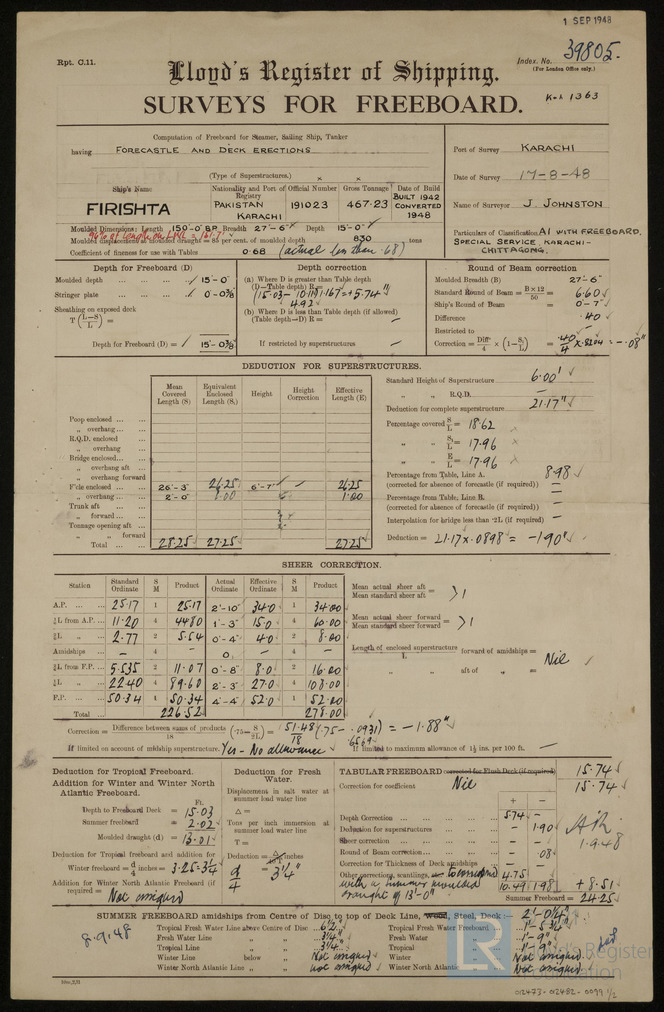 1 SEP 1948
Rpt. C.11.
Index. No. 39805.
(For London Office only.)
Lloyd's Register of Shipping.
SURVEYS FOR FREEBOARD.
Computation of Freeboard for Steamer, Sailing Ship, Tanker
having FORECASTLE AND DECK ERECTIONS
(Type of Superstructures.)
Port of Survey KARACHI
Date of Survey 17-8-48
Name of Surveyor J. JOHNSTON
Particulars of Classification A1 WITH FREEBOARD,
SPECIAL SERVICE KARACHI-
CHITTAGONG.
Ship's Name Nationality and Port of Registry Official Number Gross Tonnage Date of Build
FIRISHTA PAKISTAN KARACHI 191023 467.23 BUILT 1942 CONVERTED 1948
Moulded Dimensions: Length 150'-0" BP Breadth 27'-6" Depth 15'-0"
96% of length on LWL = 151.7'
Moulded displacement at moulded draught = 85 per cent. of moulded depth 830 tons
Coefficient of fineness for use with Tables 0.68 (actual less than .68)
Depth for Freeboard (D)
Moulded depth 15'-0"
Stringer plate 0-0⅜
Sheathing on exposed deck
T (L-S/L) =
Depth for Freeboard (D) = 15'-0⅜
Depth correction
(a) Where D is greater than Table depth
(D-Table depth) R=
(15.03-10.11)1.167=+5.74"
4.92
(b) Where D is less than Table depth (if allowed)
(Table depth-D) R =
If restricted by superstructures
Round of Beam correction
Moulded Breadth (B) 27'-6"
Standard Round of Beam = B×12/50 = 6.60
Ship's Round of Beam = 0-7"
Difference .40
Restricted to
Correction = Diff/4 × (1-S₁/L) = .40/4 × .8204 = -.08"
DEDUCTION FOR SUPERSTRUCTURES.
Mean Covered Length (S) Equivalent Enclosed Length (S₁) Height Height Correction Effective Length (E)
Poop enclosed
„ overhang
R.Q.D. enclosed
„ overhang
Bridge enclosed
„ overhang aft
„ overhang forward
F'cle enclosed 26'-3" 26.25 6'-7" 26.25
„ overhang 2'-0" 1.00 1.00
Trunk aft
„ forward
Tonnage opening aft
„ „ forward
Total 28.25 27.25 27.25
Standard Height of Superstructure 6.00'
„ „ R.Q.D.
Deduction for complete superstructure 21.17"
Percentage covered S/L = 18.62
„ „ S₁/L = 17.96
„ „ E/L = 17.96
Percentage from Table, Line A. 8.98
(corrected for absence of forecastle (if required))
Percentage from Table, Line B.
(corrected for absence of forecastle (if required))
Interpolation for bridge less than ·2L (if required)
Deduction = 21.17 × .0898 = -1.90"
SHEER CORRECTION.
Station Standard Ordinate S M Product Actual Ordinate Effective Ordinate S M Product
A.P. 25.17 1 25.17 2'-10" 34.0 1 34.00
⅙L from A.P. 11.20 4 44.80 1'-3" 15.0 4 60.00
⅓L „ 2.77 2 5.54 0'-4" 4.0 2 8.00
Amidships - 4 - 0 - 4 -
⅓L from F.P. 5.535 2 11.07 0'-8" 8.0 2 16.00
⅙L „ 22.40 4 89.60 2'-3" 27.0 4 108.00
F.P. 50.34 1 50.34 4'-4" 52.0 1 52.00
Total 226.52 278.00
Mean actual sheer aft
Mean standard sheer aft = >1
Mean actual sheer forward
Mean standard sheer forward = >1
Length of enclosed superstructure forward of amidships =
L
„ aft of „ = Nil
Correction = Difference between sums of products/18 (·75 - S/2L) = 51.48/18 (.75 - .0931) = -1.88"
.6569
If limited on account of midship superstructure. Yes - No allowance
If limited to maximum allowance of 1½ ins. per 100 ft.
Deduction for Tropical Freeboard.
Addition for Winter and Winter North
Atlantic Freeboard.
Ft.
Depth to Freeboard Deck = 15.03
Summer freeboard = 2.02
Moulded draught (d) = 13.01
Deduction for Tropical freeboard and addition for
Winter freeboard = d/4 inches = 3.25=3¼
Addition for Winter North Atlantic Freeboard (if
required) = Not assigned
Deduction for Fresh
Water.
Displacement in salt water at
summer load water line
Δ =
Tons per inch immersion at
summer load water line
T =
Deduction = inches
d/4 = 3¼"
TABULAR FREEBOARD corrected for Flush Deck (if required) 15.74
Correction for coefficient Nil 15.74
+ -
Depth Correction 5.74 -
Deduction for superstructures - 1.90
Sheer correction - -
Round of Beam correction - .08
Correction for Thickness of Deck amidships - -
Other corrections, scantlings, to correspond 4.75
with a summer moulded
draught of 13'-0"
10.49 1.98 +8.51
Summer Freeboard = 24.25
1.9.48
SUMMER FREEBOARD amidships from Centre of Disc to top of Deck Line, Wood, Steel, Deck:— 2'-0¼"
8.9.48
Tropical Fresh Water Line above Centre of Disc 6½" Tropical Fresh Water Freeboard 1'-5¾"
Fresh Water Line „ „ 3¼" Fresh Water „ 1'-9"
Tropical Line „ „ 3¼" Tropical „ 1'-9"
Winter Line below „ Not assigned Winter „ Not assigned
Winter North Atlantic Line „ „ not assigned Winter North Atlantic „ not assigned
LR Lloyd's Register
Foundation
012473-012482-0099 1/2